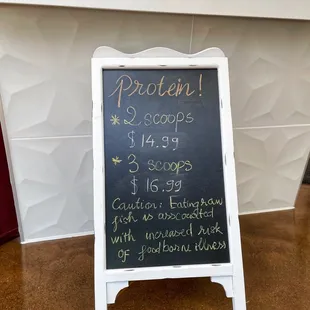 Protein!
* 2 scoops
$ 14.99
* 3 scoops
$ 16.99
Caution: Eating raw
fish is associated
with increased risk
of foodborne illness